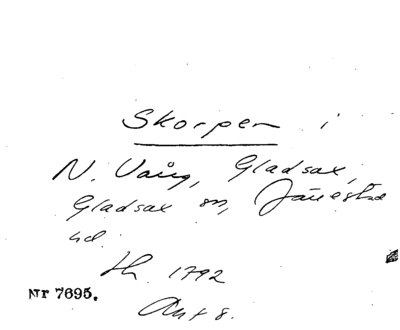 Skorpen i
N. Vång, Gladsax,
Gladsax sn, Järrestad
hd.
Lh. 1792
Nr 7695.
Akt 8.